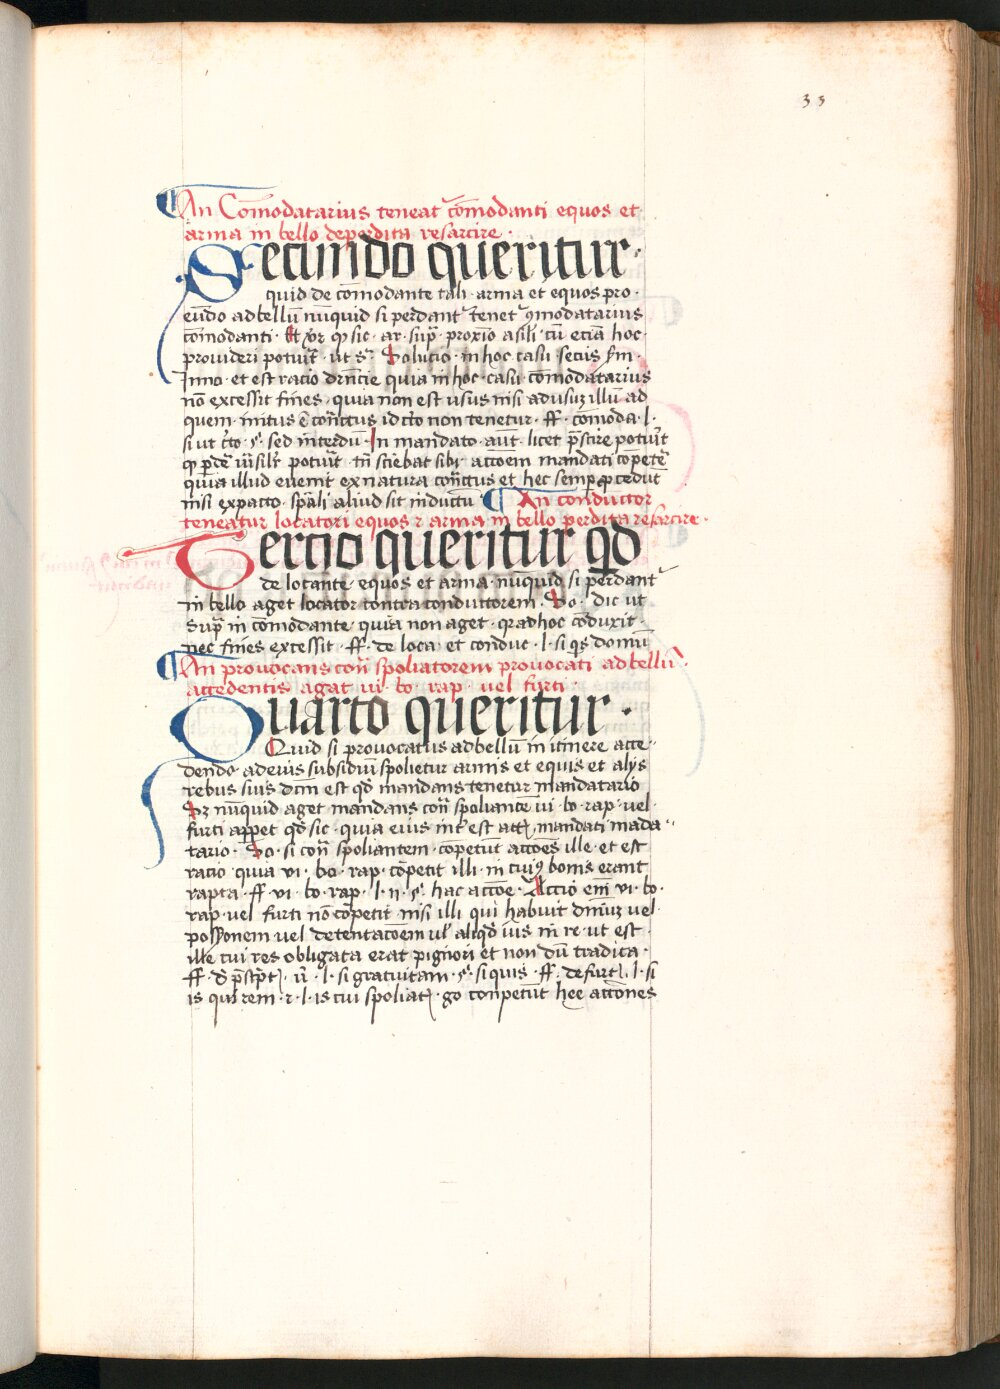 33
An Comodatarius teneat comodanti equos et
arma in bello deperdita resarcire.
Secundo queritur.
quid de comodante tali. arma et equos pro.
eundo ad bellu nuquid si perdant tenet comodatarius
comodanti. Et qr q sic. ar. sup. proximo a sili cu ecia hoc
provideri potuit. ut s. Solucio. in hoc casu secus fm.
Inno. et est racio drncie quia in hoc casu comodatarius
no excessit fines. quia non est usus nisi ad usuz illu ad
quem. initus e contctus idcirco non tenetur. ff. comoda. l.
si ut cto. s. sed interdu. In mandato aut. licet pscire potuit
q pdere ... potuit. tn sciebat sibi accoem mandati copete
quia illud evenit ex natura contctus et hec semp pcedut
nisi ex pacto. spali aliud sit inductu ¶ An conductor
teneatur locatori equos et arma in bello perdita resarcire.
Tercio queritur qd
de locante. equos et arma. nuquid si perdant
in bello aget locator contra conductorem. So. dic ut
sup in comodante quia non aget. qr ad hoc coduxit.
nec fines excessit. ff. de loca. et conduc. l. si qs domu
¶ An provocans con spoliatorem provocati ad bellu.
accedentis agat vi. bo. rap. vel furti.
Quarto queritur.
Quid si provocatus ad bellu in itinere acce-
dendo. ad eius subsidiu spolietur armis et equis et alys
rebus suis dcm est qd mandans tenetur mandatario
Sz nuquid aget mandans con spoliante vi. bo. rap. vel.
furti appet qd sic. quia eius int est ... mandati mada
tario. So. si con spoliantem. copetut accoes ille. et est
racio quia vi. bo. rap. copetit illi. in cui9 bonis erant
rapta. ff. vi. bo. rap. l. ii. s. hac accoe. Accio em vi. bo.
rap. vel furti no copetit nisi illi qui habuit dmiuz vel.
possonem vel detentacoem ul aliqd ius in re. ut est.
ille cui res obligata erat pignori et non du tradita.
ff. d pscpt. v. l. si gratuitam. s. si quis. ff. de furt. l. si
is qui rem. et. l. is cui spoliat. go conpetut hee accones